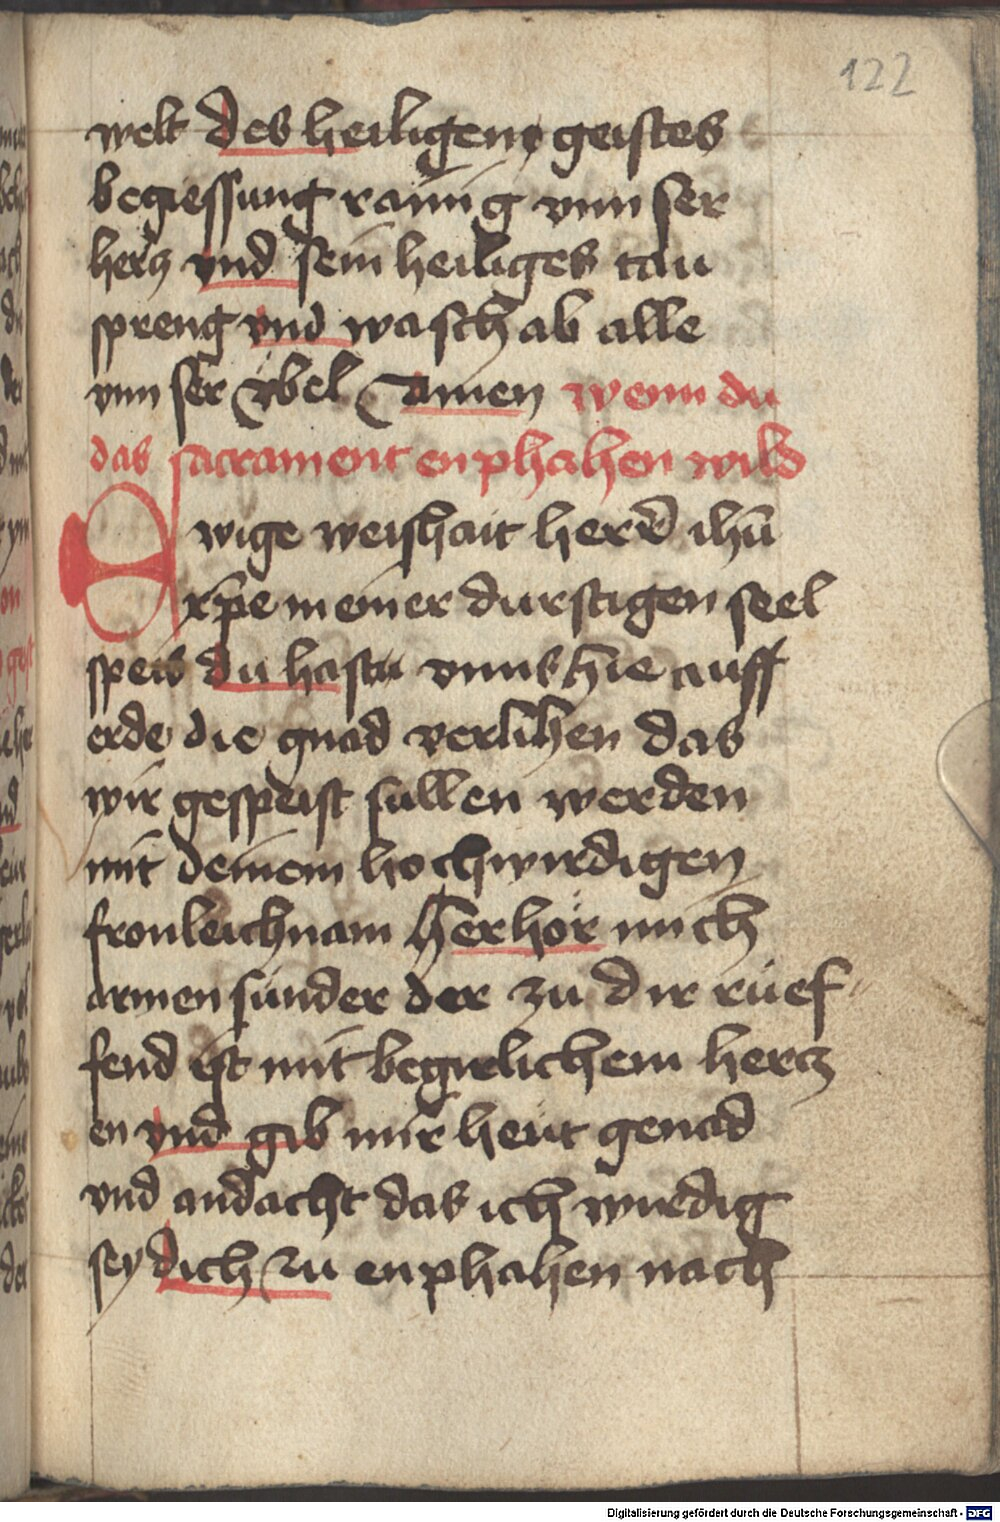 122
welt des heiligenn geistes
begiessung rainig vnnser
hercz vnd sein heiliges tau
spreng vnd wasch ab alle
vnnser vbel Amen wenn du
das sacrament enphahen wild
Ewige weishait herr ihū
xp̄e meiner durstigen seel
speis du hast vnns hie auff
erde die gnad verlihen das
wir gespeist sullen werden
mit deinem hochwirdigen
fronleichnam Herhör mich
armen sünder der zu dir rüef-
fend ist mit begirlichem hercz
en vnd gib mir heut genad
vnd andacht das ich wirdig
sey dich zu enphahen nach
Digitalisierung gefördert durch die Deutsche Forschungsgemeinschaft - DFG